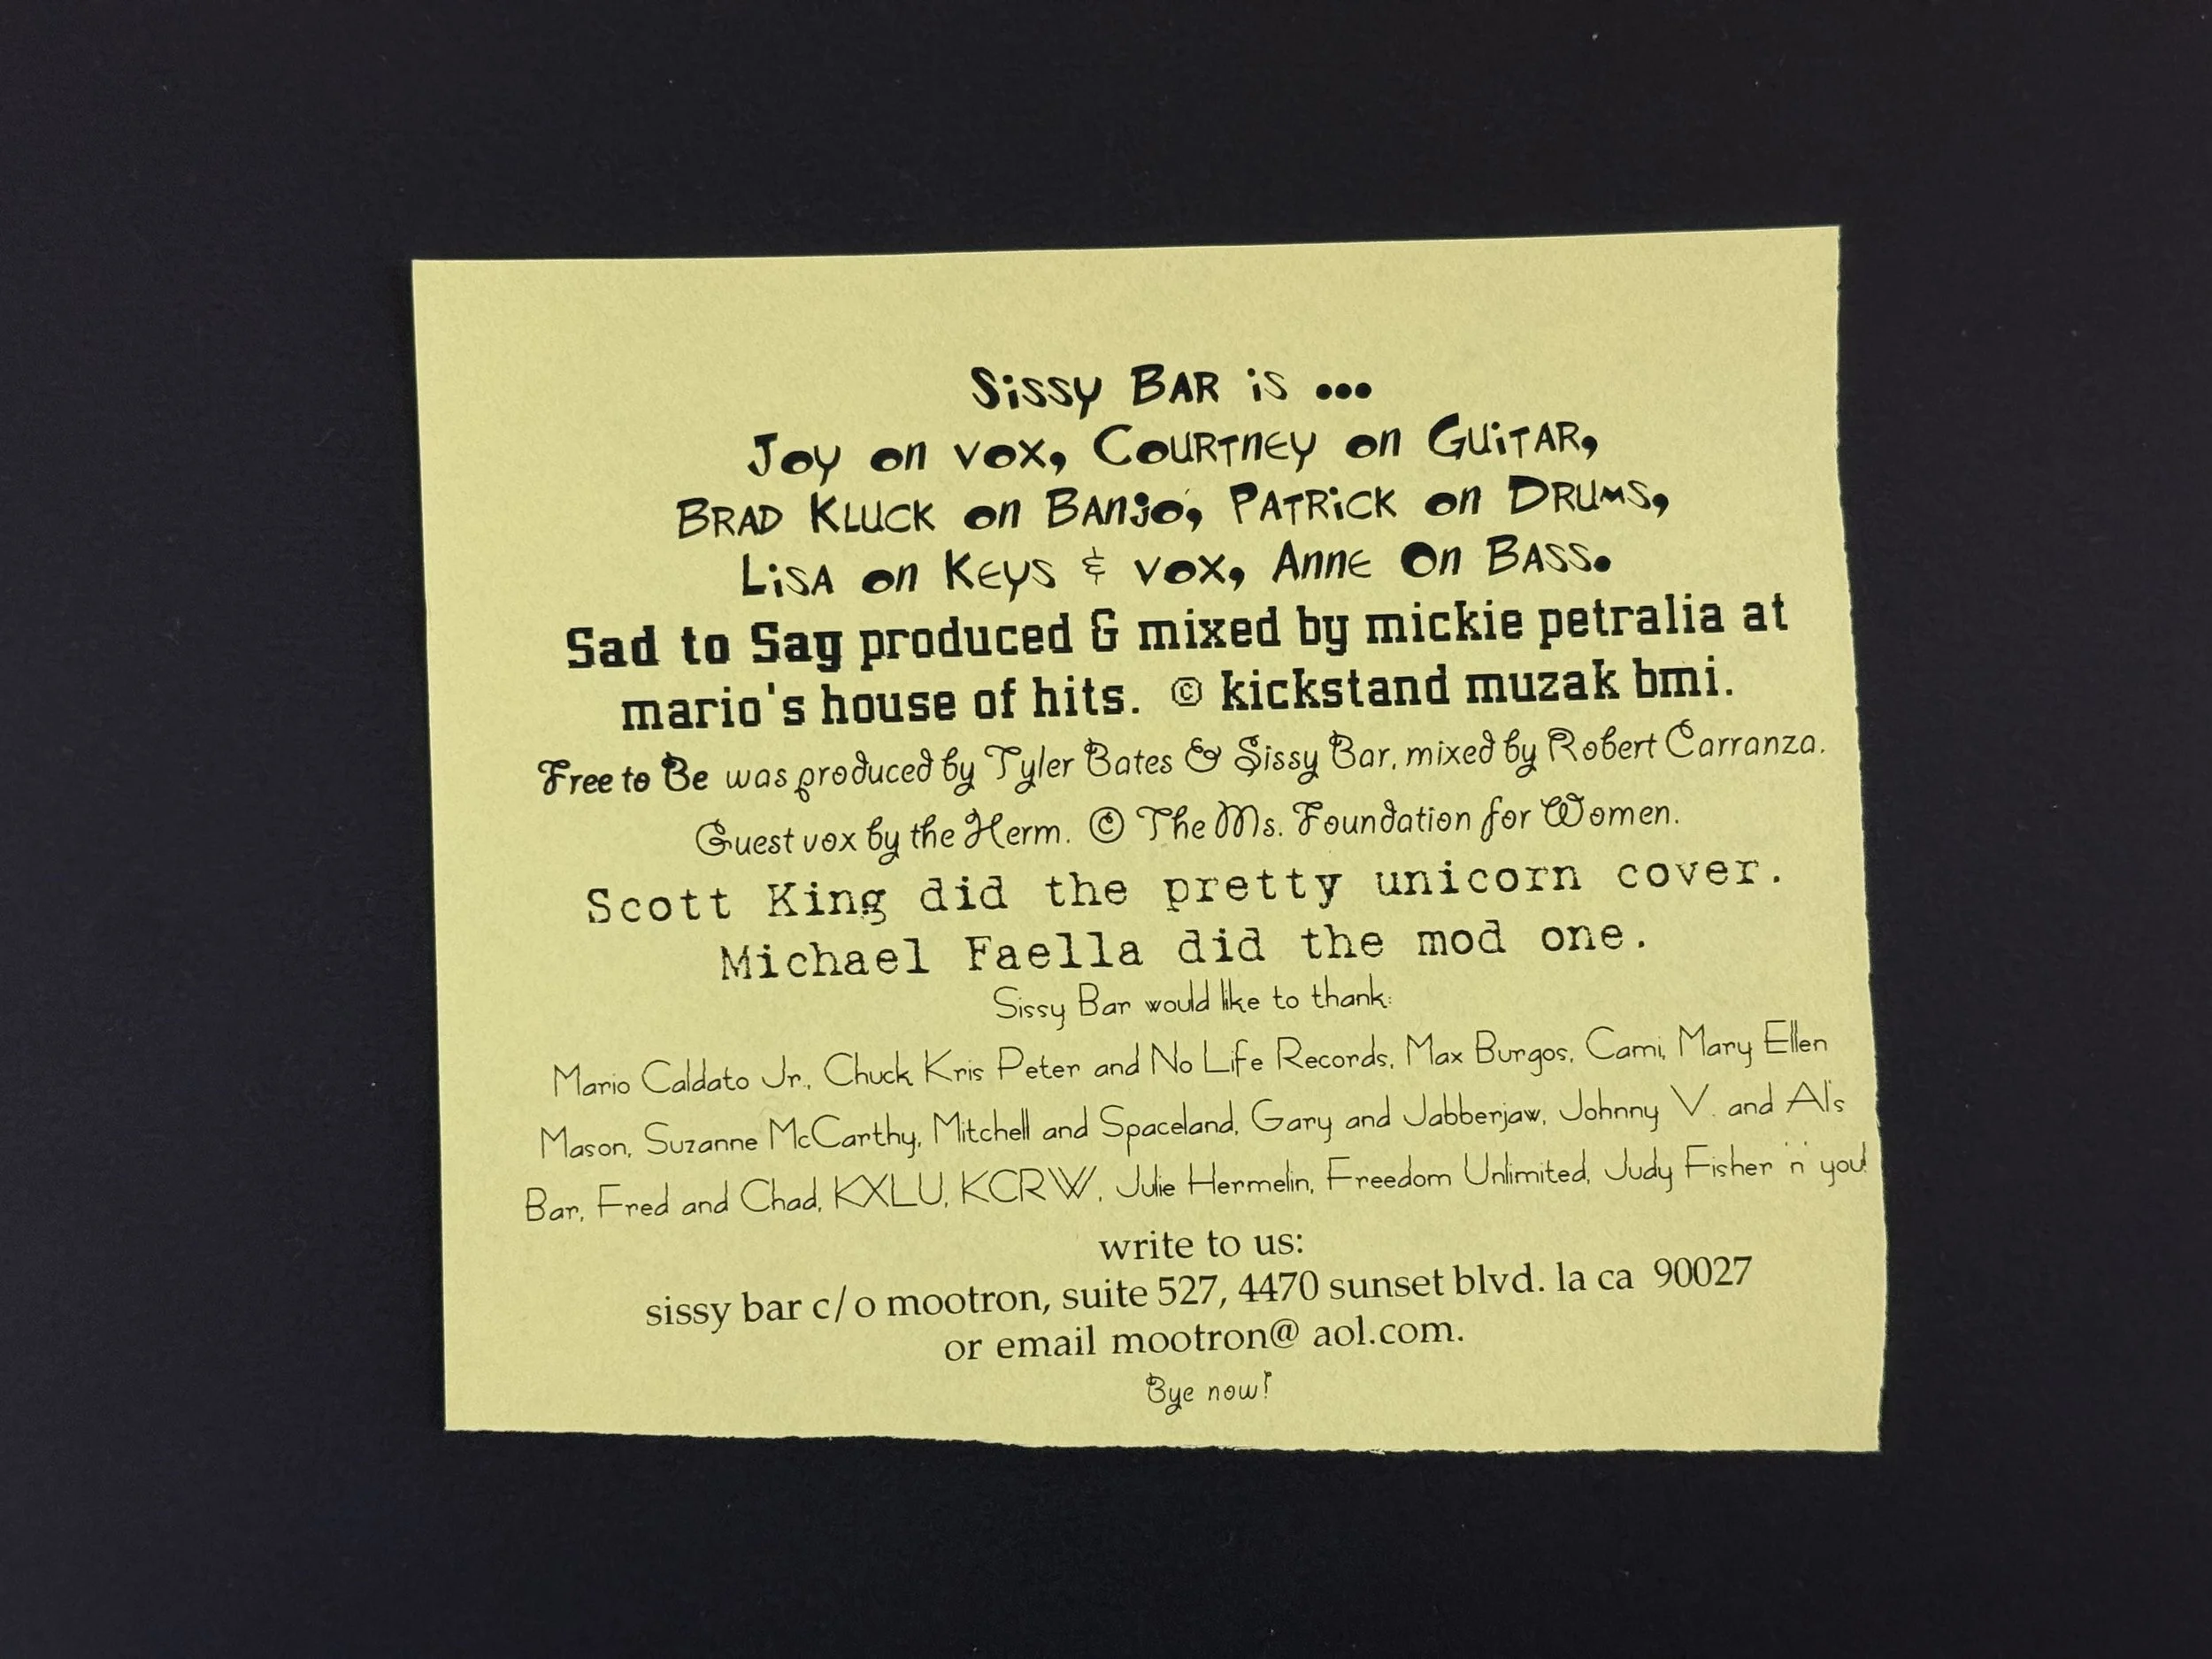 Sissy Bar is ...
Joy on vox, Courtney on Guitar,
Brad Kluck on Banjo, Patrick on Drums,
Lisa on Keys & vox, Anne On Bass.
Sad to Say produced & mixed by mickie petralia at
mario's house of hits. © kickstand muzak bmi.
Free to Be was produced by Tyler Bates & Sissy Bar, mixed by Robert Carranza.
Guest vox by the Herm. © The Ms. Foundation for Women.
Scott King did the pretty unicorn cover.
Michael Faella did the mod one.
Sissy Bar would like to thank:
Mario Caldato Jr., Chuck Kris Peter and No Life Records, Max Burgos, Cami, Mary Ellen
Mason, Suzanne McCarthy, Mitchell and Spaceland, Gary and Jabberjaw, Johnny V. and Al's
Bar, Fred and Chad, KXLU, KCRW, Julie Hermelin, Freedom Unlimited, Judy Fisher 'n' you!
write to us:
sissy bar c/o mootron, suite 527, 4470 sunset blvd. la ca 90027
or email mootron@ aol.com.
Bye now!